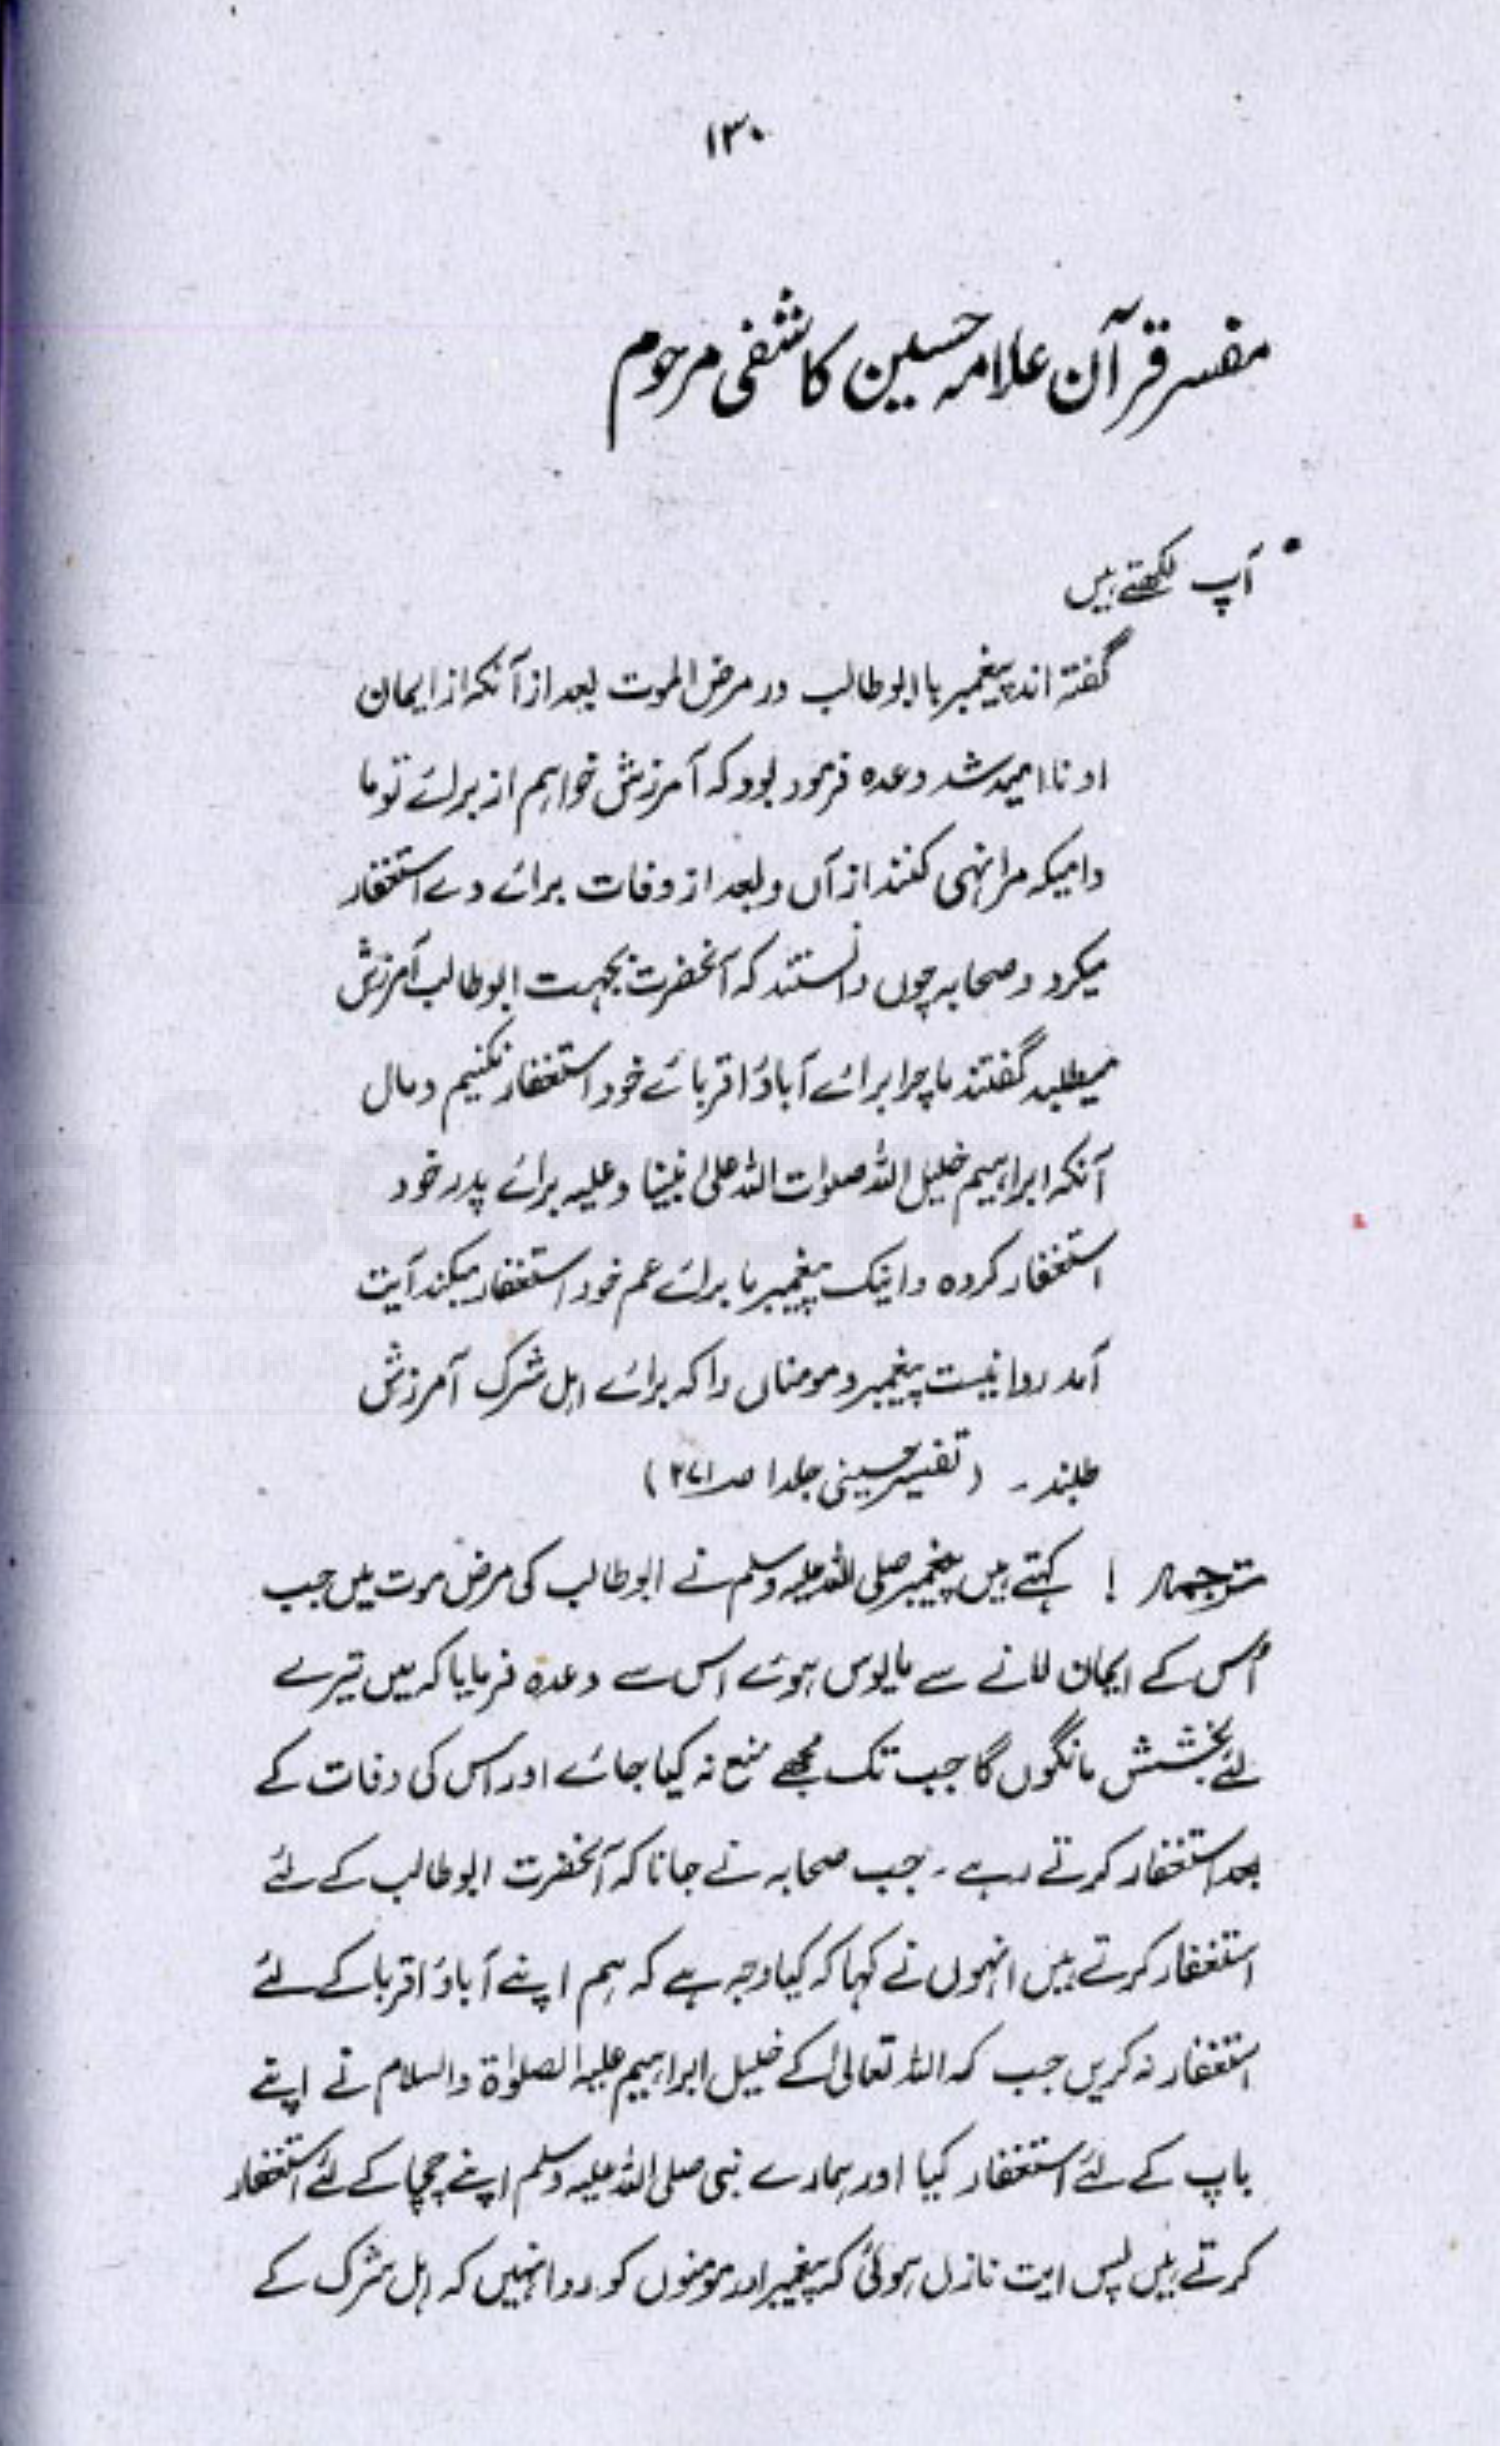 ۱۳۰
مفسر قرآن علامہ حسین کاشفی مرحوم
• آپ لکھتے ہیں
گفتہ اند پیغمبر با ابوطالب در مرض الموت بعد از آنکہ از ایمان
او نا امید شد وعدہ فرمود بود کہ آمرزش خواہم از برائے تو ما
دامیکہ مرا نہی کنند از آں و بعد از وفات برائے وے استغفار
میکرد و صحابہ چوں دانستند کہ آنحضرت بجہت ابوطالب آمرزش
میطلبد گفتند ما چرا برائے آباؤ اقربائے خود استغفار نکنیم و مال
آنکہ ابراہیم خلیل اللہ صلوات اللہ علیٰ نبینا و علیہ برائے پدر خود
استغفار کردہ و اینک پیغمبر ما برائے عم خود استغفار میکند آیت
آمد روا نیست پیغمبر و مومناں را کہ برائے اہل شرک آمرزش
طلبند ۔ (تفسیر حسینی جلد ۱ صـ ۲۷۱)
ترجمہ ! کہتے ہیں پیغمبر صلی اللہ علیہ وسلم نے ابوطالب کی مرض موت میں جب
اُس کے ایمان لانے سے مایوس ہوئے اس سے وعدہ فرمایا کہ میں تیرے
لئے بخشش مانگوں گا جب تک مجھے منع نہ کیا جائے اور اس کی وفات کے
بعد استغفار کرتے رہے ۔ جب صحابہ نے جانا کہ آنحضرت ابوطالب کے لئے
استغفار کرتے ہیں انہوں نے کہا کہ کیا وجہ ہے کہ ہم اپنے آباؤ اقربا کے لئے
استغفار نہ کریں جب کہ اللہ تعالیٰ کے خلیل ابراہیم علیہ الصلوٰۃ والسلام نے اپنے
باپ کے لئے استغفار کیا اور ہمارے نبی صلی اللہ علیہ وسلم اپنے چچا کے لئے استغفار
کرتے ہیں پس ایت نازل ہوئی کہ پیغمبر اور مومنوں کو روا نہیں کہ اہل شرک کے